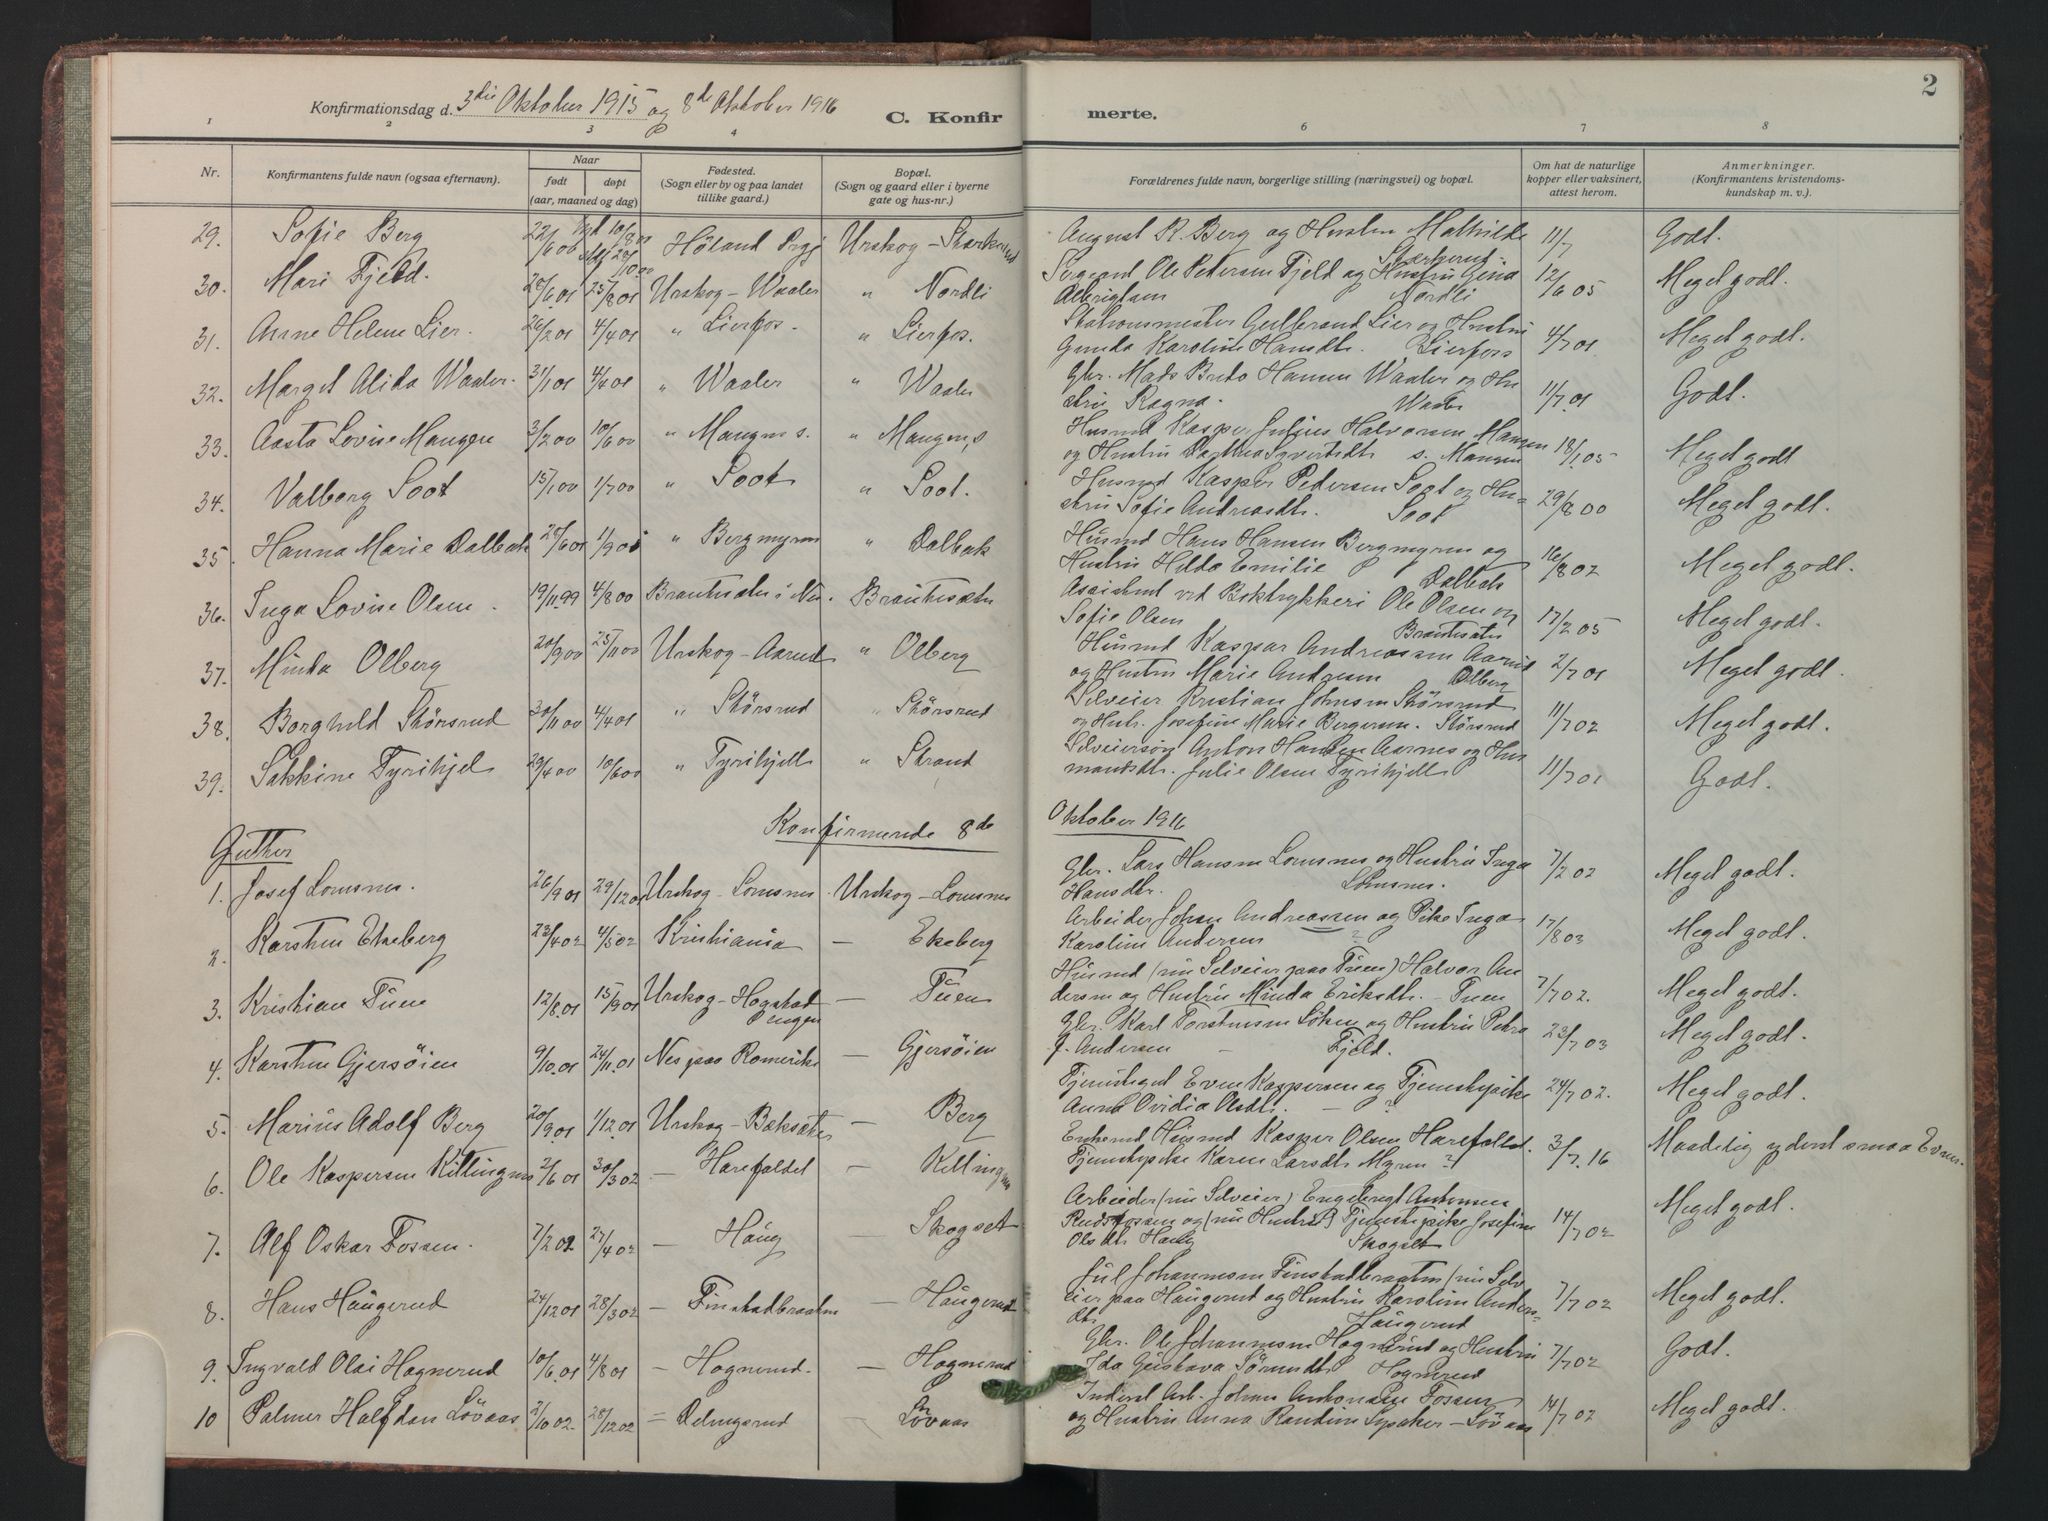 2
Konfirmationsdag d. 3die Oktober 1915 og 8de Oktober 1916
C. Konfirmerte.
1 2 3 4 6 7 8
Nr.
Konfirmantens fulde navn (ogsaa efternavn).
Naar
født døpt
(aar, maaned og dag)
Fødested.
(Sogn eller by og paa landet
tillike gaard.)
Bopæl.
(Sogn og gaard eller i byerne
gate og hus-nr.)
Forældrenes fulde navn, borgerlige stilling (næringsvei) og bopæl.
Om hat de naturlige
kopper eller vaksinert,
attest herom.
Anmerkninger.
(Konfirmantens kristendoms-
kundskap m. v.).
29. Sofie Berg 22/6 00 Høland Urskog - August R. Berg og Hustru Mathilde 11/7 Godt.
30. Mari Fjeld. 28/6 01 25/8 01 Urskog - Waaler " Nordli Sergeant Ole Pedersen Fjeld og Hustru Gina 12/6 05 Meget godt.
Albrigtsen Nordli
31. Anne Helene Lier. 26/2 01 4/4 01 " Lierfos. " Lierfos. Stationsmester Gulbrand Lier og Hustru 4/7 01 Meget godt.
Gunda Karoline Hansdt. Lierfoss
32. Marget Alida Waaler. 31/1 01 4/4 01 " Waaler " Waaler Gbr. Mads Hansen Waaler og Hu- 11/7 01 Godt.
stru Ragna. Waaler
33. Aasta Lovise Mangen 3/2 00 10/6 00 " Mangen s. " Mangen s Husmd Kasper Julius Halvorsen Mangen 18/1 05 Meget godt
og Hustru Syvertsdt. s. Mangen
34. Valborg Soot 15/1 00 1/7 00 " Soot " Soot. Husmd Kasper Pedersen Soot og Hu= 29/8 00 Meget godt.
stru Sofie Andreasdt. Soot
35. Hanna Marie Dalbak 28/6 01 1/9 01 " Bergmyren " Dalbak Husmd Hans Hansen Bergmyren og 16/8 02 Meget godt.
Hustru Hilda Emilie Dalbak
36. Inga Lovise Olsen. 19/11 99 4/8 00 Brautesæter i Nes. Brautesæter Assistent ved Boktrykkeri Ole Olsen og 17/2 05 Meget godt.
Sofie Olsen Brautesæter
37. Minda Olberg 20/9 00 25/11 00 Urskog - Aarud " Olberg Husmd Kaspar Andreassen Aarud 2/7 01 Meget godt.
og Hustru Marie Andresen Olberg
38. Borghild Störsrud 30/11 00 4/4 01 " Störsrud " Störsrud Selveier Kristian Johnsen Störsrud 11/7 02 Meget godt.
og Hustr. Josefine Marie Bergersen. Störsrud
39. Sakkine Tyrihjel 29/4 00 10/6 00 " Tyrihjell " Strand Selveiersøn Anton Hansen Aarnes og Hus 11/7 01 Godt.
mandsdt. Julie Olsen Tyrihjell
Konfirmerede 8de Oktober 1916
Gutter
1. Josef Lomsnes. 26/9 01 29/12 01 Urskog - Lomsnes. Urskog - Lomsnes Gbr. Lars Hansen Lomsnes og Hustru Inga 7/2 02 Meget godt.
Hansdtr. Lomsnes.
2. Karsten Ekeberg 23/4 02 4/5 02 Kristiania — Ekeberg Arbeider Johan Andreassen og Pike Inga 17/8 03 Meget godt.
Karoline Andersen ?
3. Kristian Tuen 12/8 01 15/9 01 Urskog - Hogstad — Tuen Husmd (nu Selveier paa Tuen) Halvor An 7/7 02. Meget godt.
engen dersen og Hustru Minda Eriksdt. - Tuen
4. Karsten Gjersöien 9/10 01 24/11 01 Nes paa Romerike — Gjersöien Gbr. Karl Torstensen Löken og Hustru Petra 23/7 03 Meget godt.
f. Andersen - Fjeld.
5. Marius Adolf Berg 20/9 01 1/12 01 Urskog - Bæksæter — Berg Tjenstegut Even Kaspersen og Tjenstepike 24/7 02. Meget godt.
Anna Ovidia Olsdt. — ?
6. Ole Kaspersen Killingmo 2/6 01 30/3 02 — Harefaldet — Killingmo Enkemd Husmd Kasper Olsen Harefallet. 3/7 16 Maadelig yderst smaa Evner.
Tjenstepike Karen Larsdt. Myren ?
7. Alf Oskar Fossen. 7/2 02 27/4 02 — Haug — Skogset Arbeider (nu Selveier) Engebrigt Antonsen 14/7 02 Meget godt.
Rudsfossen og (nu Hustru) Tjenstepike Josefine
Olsdt. Haug Skogset
8. Hans Haugerud 24/12 01 28/3 02 — Finstadbraaten — Haugerud Jul Johannesen Finstadbraaten (nu Selv 7/7 02 Meget godt.
eier paa Haugerud og Hustru Karoline Anders-
dt. Haugerud
9. Ingvald Olai Hognerud 10/6 01 4/8 01 — Hognerud. — Hognerud Gbr. Ole Johannesen Hognerud og Hustru 7/7 02 Godt.
Ida Gustava Hognerud
10 Palmer Halfdan Lövaas 2/10 02. 28/12 02 = Delingsrud — Lövaas Inderst Arb. Johan Antonsen Fossen 14/7 02 Meget godt.
og Hustru Anna Randine Lysaker - Lövaas